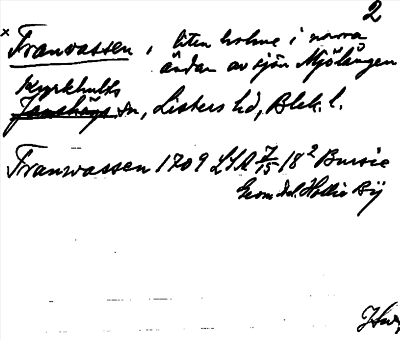 2
× Franvassen, liten holme i norra
ändan av sjön Mjölången
Kyrkhults
Jämshögs sn, Listers hd, Blek. l.
Franwassen 1709 LSA 7/15 18² Bursie
Geom. Holtie By